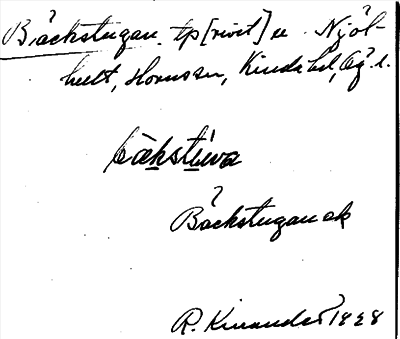 Bäckstugan tp [rivet] u. Njöl-
hult, Kinda hd, Ög. l.
bäkstùwa
Bäckstugan ak
R. Kinander 1928